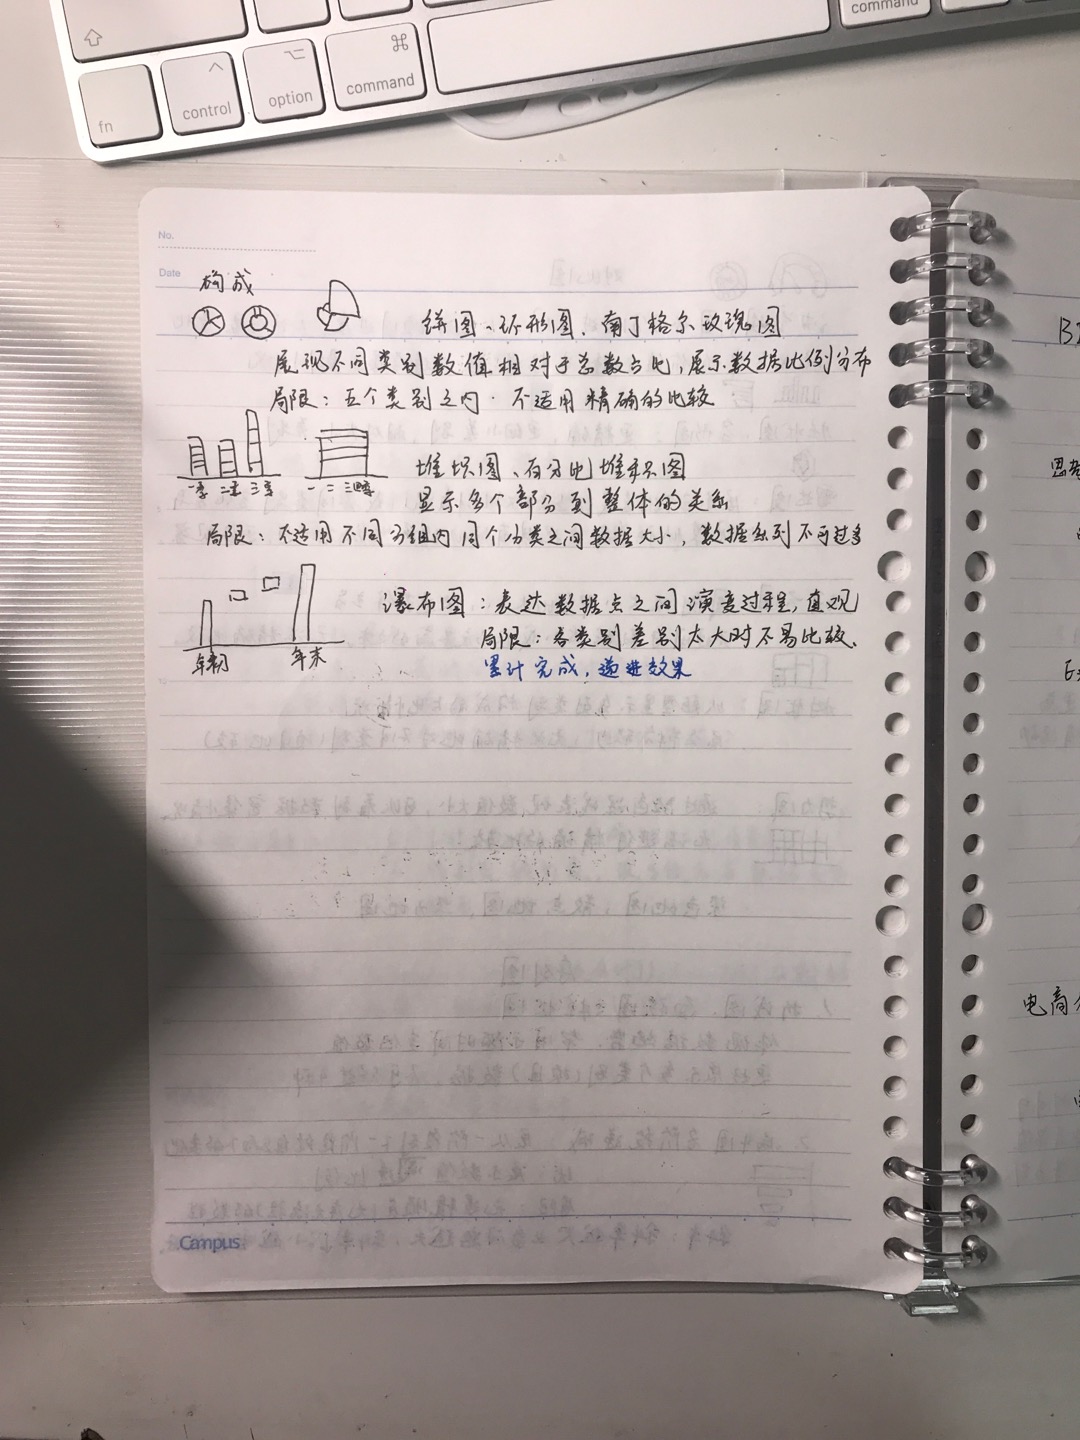 fn
control
option
command
command
No.
Date
构成
饼图、环形图、南丁格尔玫瑰图
展现不同类别数值相对于总数占比,展示数据比例分布
局限:五个类别之内.不适用精确的比较
一季 二季 三季 一 二 三四季
堆积图、百分比堆积图
显示多个部分到整体的关系
局限:不适用不同分组内同个分类之间数据大小,数据系列不可过多
瀑布图:表达数据点之间演变过程,直观
局限:各类别差别太大时不易比较.
年初 年末
累计完成,递进效果
电商
Campus